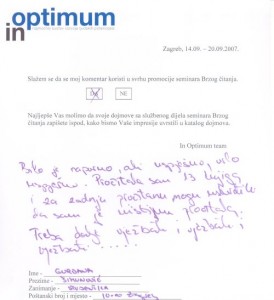 in optimum
Zagreb, 14.09. – 20.09.2007.
Slažem se da se moj komentar koristi u svrhu promocije seminara Brzog čitanja.
DA NE
Najljepše Vas molimo da svoje dojmove sa službenog dijela seminara Brzog
čitanja zapišete ispod, kako bismo Vaše impresije uvrstili u katalog dojmova.
In Optimum team
Bilo je naporno, ali uspješno, vrlo
uspješno. Pročitala sam 13 knjiga
i za zadnju pročitanu mogu
da sam je uistinu pročitala.
Treba dalje vježbati i vježbati i
vježbati......!
Ime - GORDANA
Prezime - ŠIMUNOVIĆ
Zanimanje -
Poštanski broj i mjesto - 10000 Zagreb